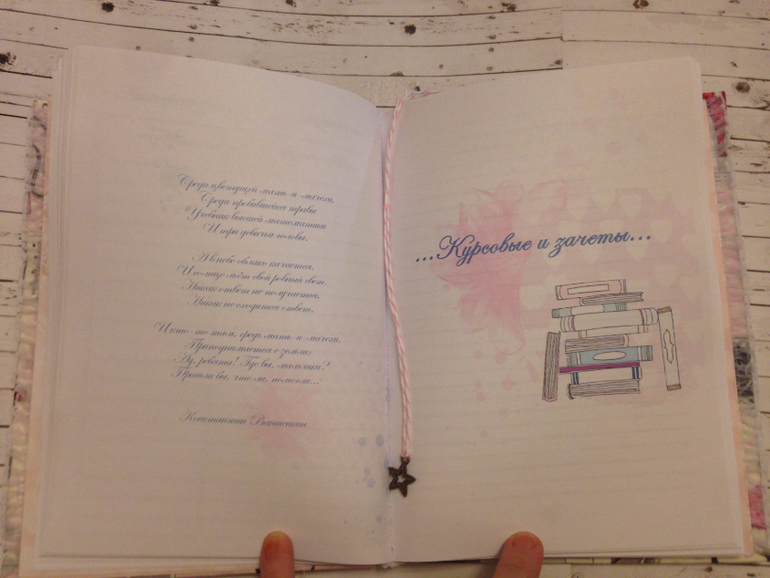 Среди цветущей мать-и-мачехи,
Среди пробившейся травы
Учебник высшей математики
И три девичьи головы.
А в небе облако качается,
И солнце льёт свой ровный свет.
Никак ответ не получается,
Никак не сходится ответ.
И кто-то там, средь мать-и-мачехи,
Приподнимается с земли:
Ау, ребята! Где вы, мальчики?
Пришли бы, что ли, помогли..."
Константин Ваншенкин
...Курсовые и зачеты...